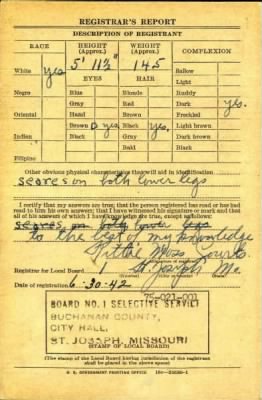 REGISTRAR'S REPORT
DESCRIPTION OF REGISTRANT
RACE HEIGHT (Approx.) WEIGHT (Approx.) COMPLEXION
White yes 5' 11½" 145 Sallow
EYES HAIR Light
Negro Blue Blonde Ruddy
Gray Red Dark yes.
Oriental Hazel Brown Freckled
Brown yes Black yes Light brown
Indian Black Gray Dark brown
Bald Black
Filipino
Other obvious physical characteristics that will aid in identification
scares on both lower legs
I certify that my answers are true; that the person registered has read or has had
read to him his own answers; that I have witnessed his signature or mark and that
all of his answers of which I have knowledge are true, except as follows:
scares on both lower legs
to the best of my knowledge
Registrar for Local Board 1 St. Joseph Mo
Date of registration 6-30-42
75-021-001
BOARD NO. 1 SELECTIVE SERVICE
BUCHANAN COUNTY,
CITY HALL,
ST. JOSEPH, MISSOURI
(STAMP OF LOCAL BOARD)
(The stamp of the Local Board having jurisdiction of the registrant
shall be placed in the above space.)
U. S. GOVERNMENT PRINTING OFFICE